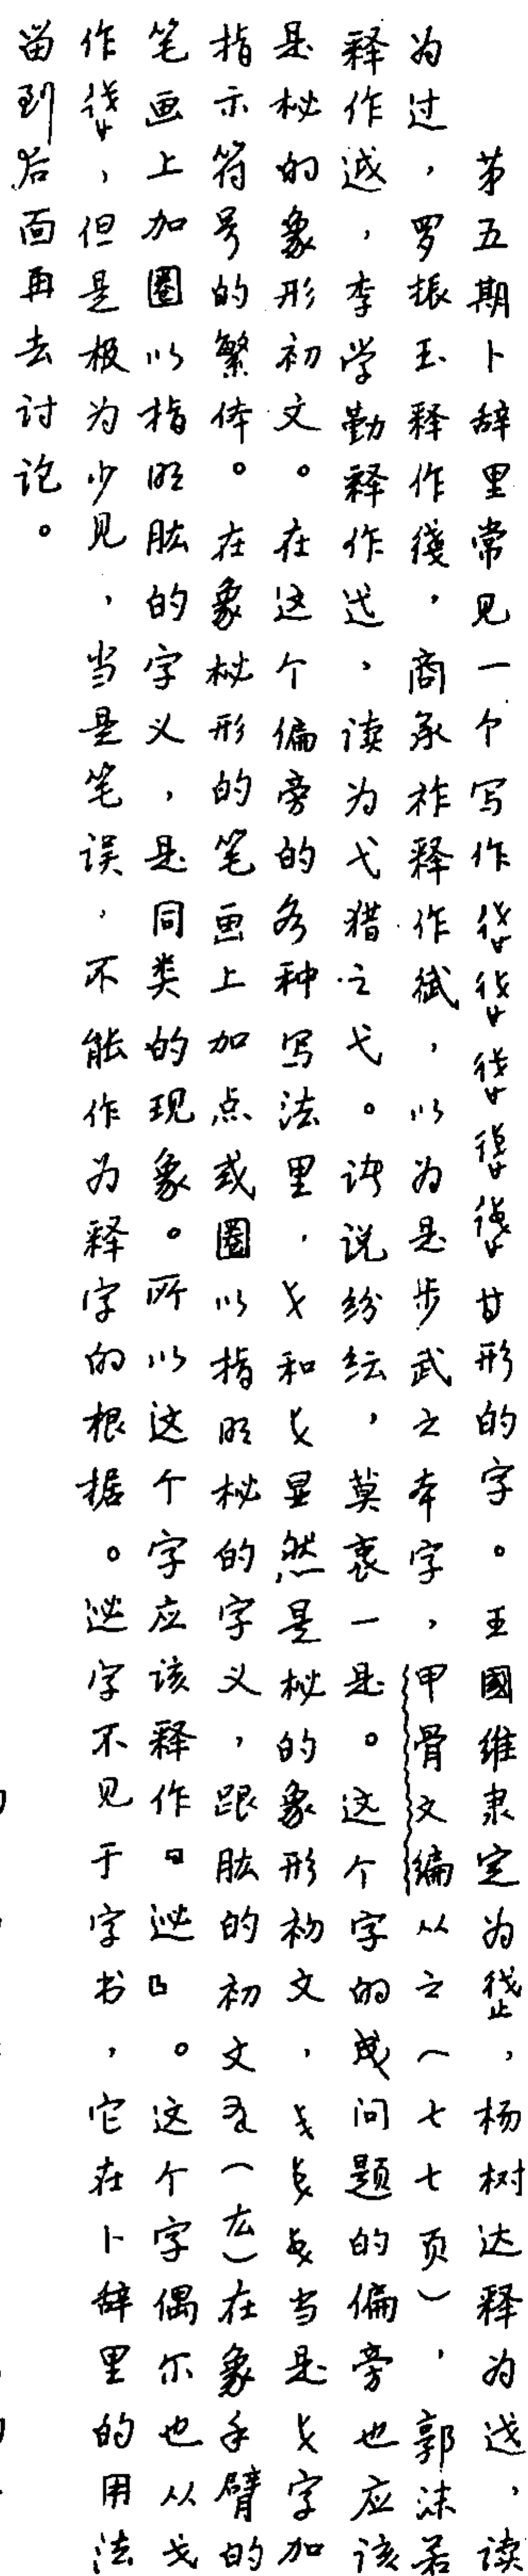 第五期卜辞里常见一个写作甘形的字。王國维隶定为，杨树达释为过，读
为过，罗振玉释作後，商承祚释作斌，以为是步武之本字，甲骨文编从之（七七页），郭沫若
释作，李学勤释作，读为弋猎之弋。诸说纷纭，莫衷一是。这个字的成问题的偏旁也应该
是柲的象形初文。在这个偏旁的各种写法里，和显然是柲的象形初文，当是字加
指示符号的繁体。在象柲形的笔画上加点或圈以指明柲的字义，跟肱的初文（厷）在象手臂的
笔画上加圈以指明肱的字义，是同类的现象。所以这个字应该释作“䢌”。这个字偶尔也从戈
作，但是极为少见，当是笔误，不能作为释字的根据。䢌字不见于字书，它在卜辞里的用法
留到后面再去讨论。